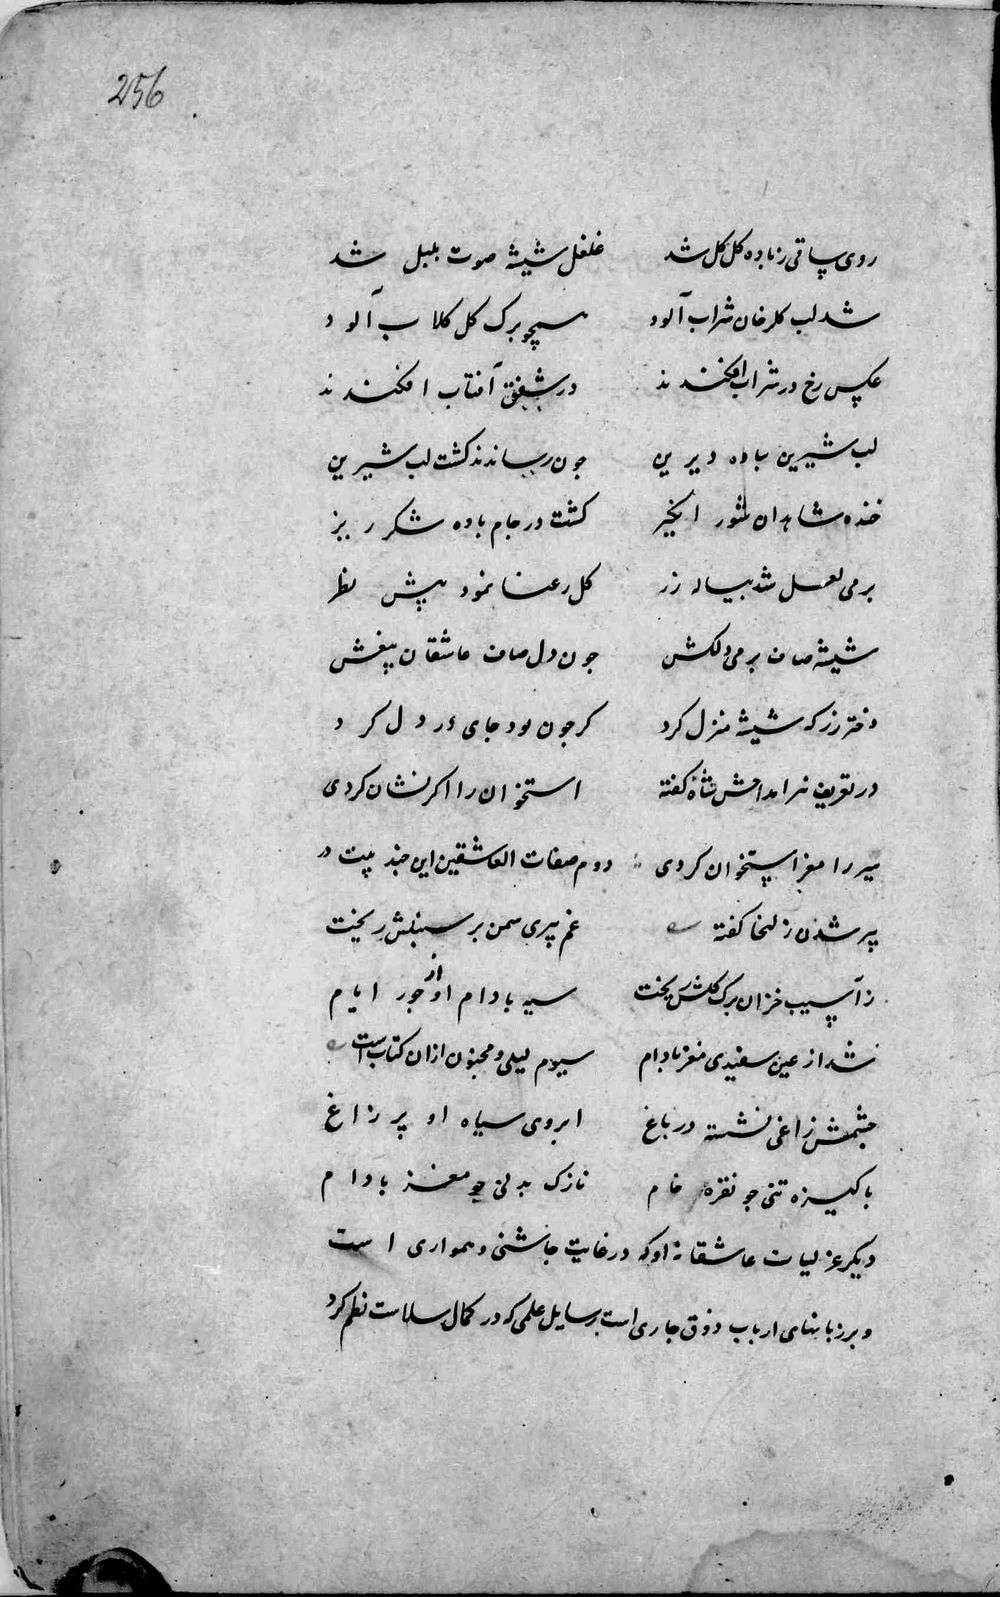 256
روی ساقی ز باده کل کل شد غلغل شیشه صوت بلبل شد
شد لب کلرخان شراب آلود همچو برک کل کلاب آلود
عکس رخ در شراب افکندند در شفق آفتاب افکندند
لب شیرین بباده دیرین چون رساندند کشت لب شیرین
خنده شاهدان شور انکیز کشت در جام باده شکر ریز
برمی لعل شد بیاله زر کل رعنا نمود پیش نظر
شیشه صاف برمی دلکش چون دل صاف عاشقان بیغش
دختر رز که شیشه منزل کرد کرچون بود جای در دل کرد
در تعریف نیر کفته استخوان را اکر نشان کردی
میر را مغز استخوان کردی دوم صفات العاشقین این چند بیت در
پیر شدن زلیخا کفته غم پیری سمن بر سنبلش ریخت
ز آسیب خزان برک کلش ریخت سیه بادام او از جور ایام
شد از عین سفیدی مغز بادام سیوم لیلی و مجنون ازان کتاب است
چشمش زاغی نشسته در باغ ابروی سیاه او پر زاغ
باکیزه تنی جو نقره خام نازک بدنی جو مغز بادام
دیکر غزلیات عاشقانه او که در غایت جاشنی و همواری است
و بر زبانهای ارباب ذوق جاری است رسایل علمی که در کمال سلاست نظم کرد